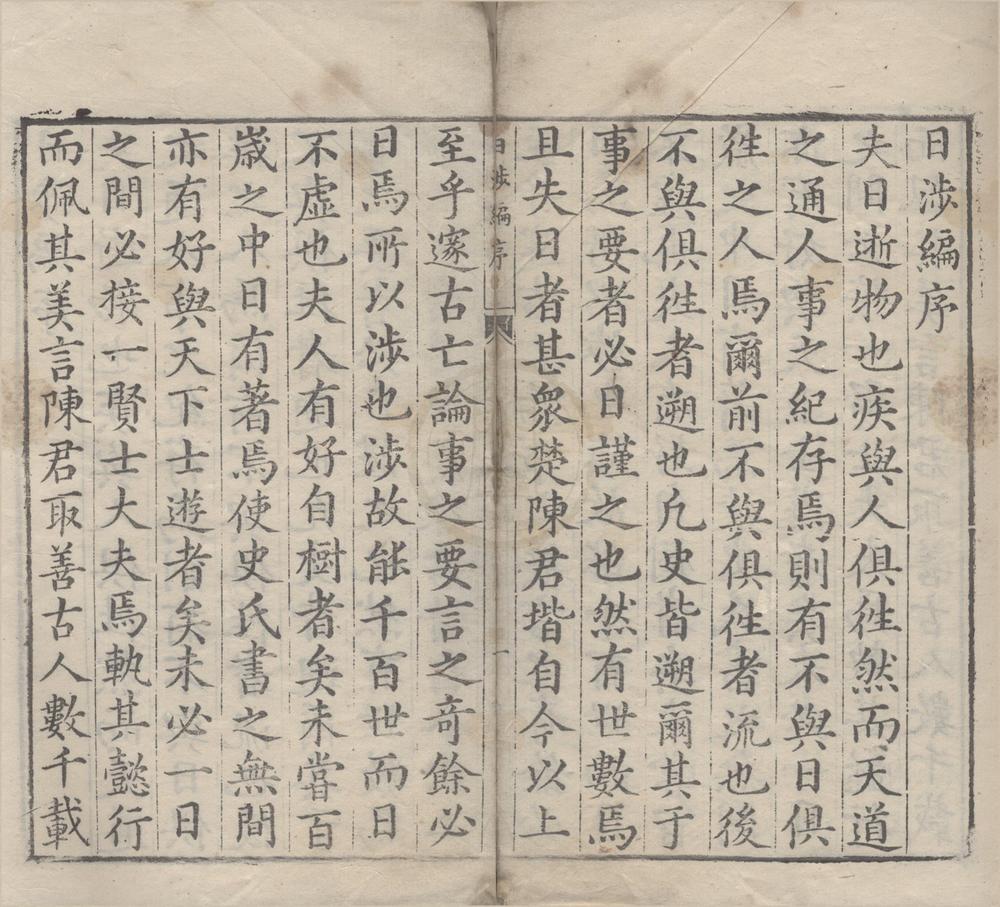 日涉編序
夫日逝物也疾與人俱徃然而天道
之通人事之紀存焉則有不與日俱
徃之人焉爾前不與俱徃者流也後
不與俱徃者遡也凢史皆遡爾其于
事之要者必日謹之也然有世數焉
且失日者甚衆楚陳君堦自今以上
日涉編序
一
至乎邃古亡論事之要言之竒餘必
日焉所以涉也涉故能千百世而日
不虛也夫人有好自樹者矣未嘗百
嵗之中日有著焉使史氏書之無間
亦有好與天下士遊者矣未必一日
之間必接一賢士大夫焉執其懿行
而佩其美言陳君取善古人數千載